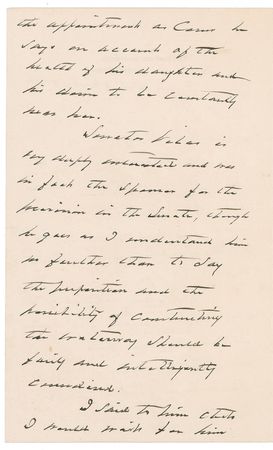 the appointment as Comr he
says on account of the
health of his daughter and
his desire to be constantly
near her.
Senator Vilas is
very deeply interested and was
in fact the sponsor for the
provision in the Senate, though
he goes as I understand him
no further than to say
the proposition and the
possibility of constructing
the waterway should be
fairly and intelligently
considered.
I said to him that
I would write for him